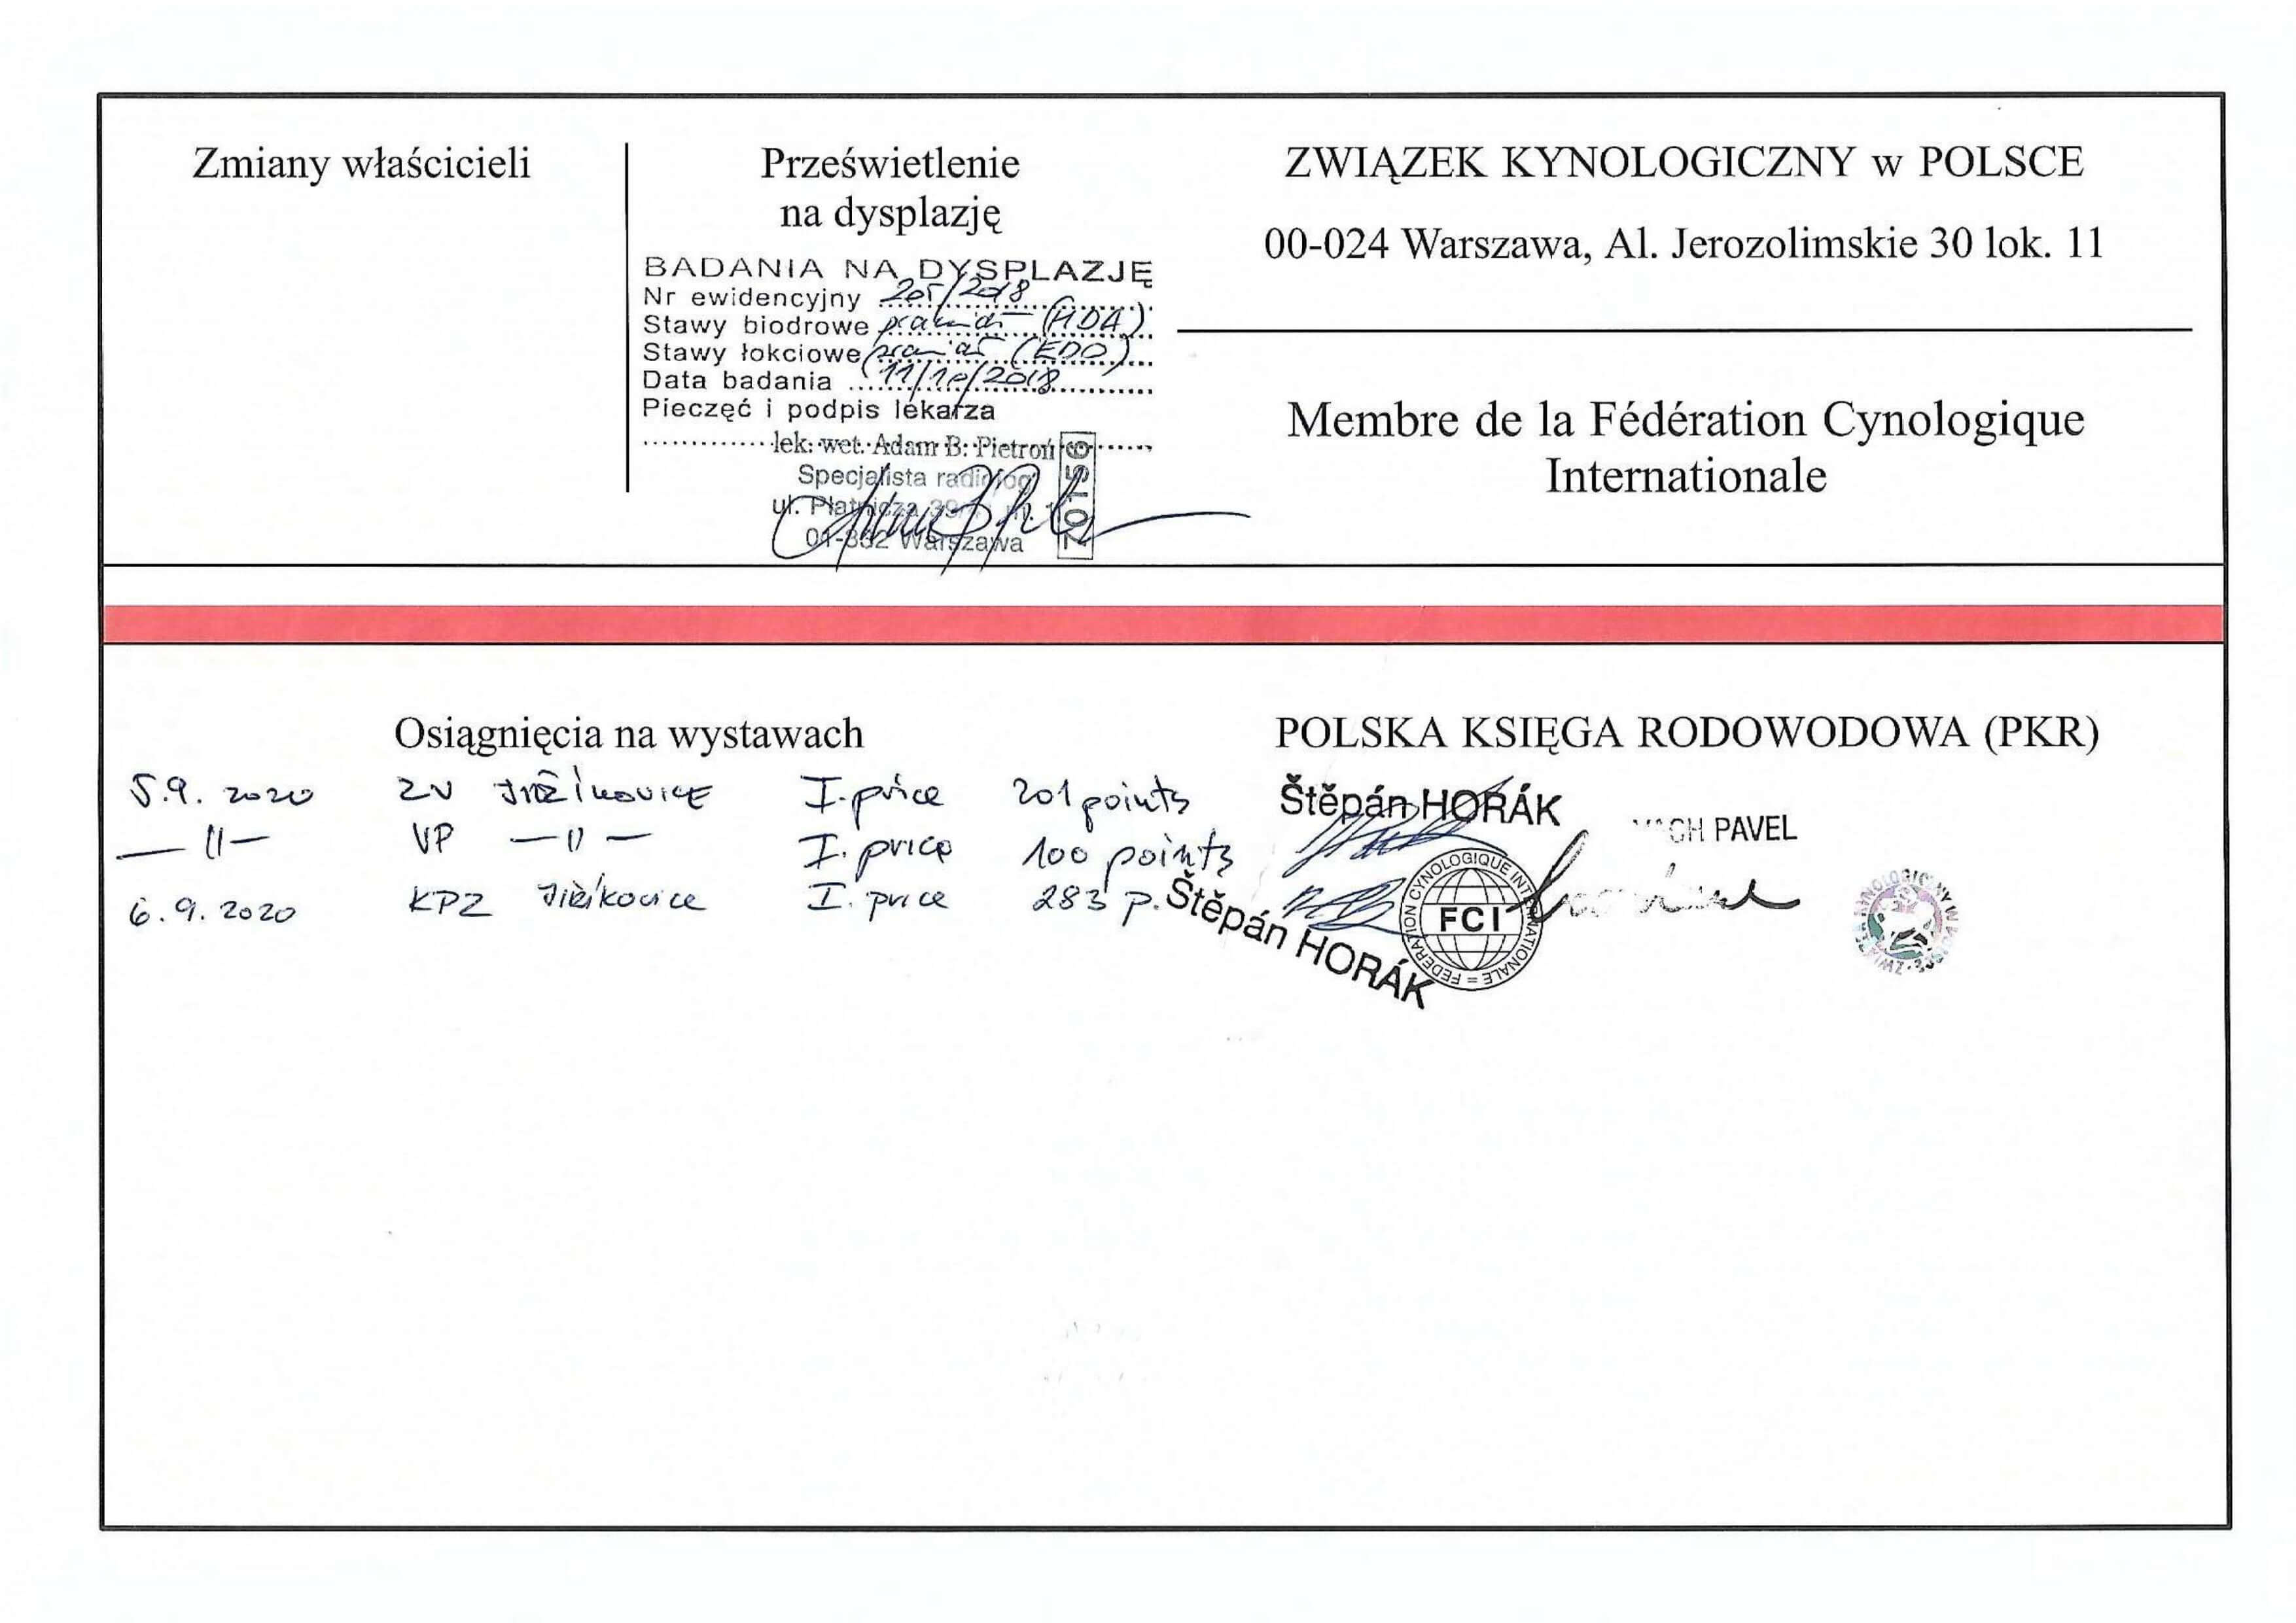 Zmiany właścicieli
Prześwietlenie
na dysplazję
BADANIA NA DYSPLAZJĘ
Nr ewidencyjny 205/2018
Stawy biodrowe (HDA)
Stawy łokciowe (ED0)
Data badania 11/10/2018
Pieczęć i podpis lekarza
lek. wet. Adam B. Pietroń
Specjalista radiolog
ul. Płatnicza
Warszawa
70156
ZWIĄZEK KYNOLOGICZNY w POLSCE
00-024 Warszawa, Al. Jerozolimskie 30 lok. 11
Membre de la Fédération Cynologique
Internationale
Osiągnięcia na wystawach
5.9. 2020 ZV Jiříkovice I. price 201 points
— 11 — VP — 11 — I. price 100 points
6.9. 2020 KPZ Jiříkovice I. price 283 p.
POLSKA KSIĘGA RODOWODOWA (PKR)
Štěpán HORÁK
PAVEL
Štěpán HORÁK
FEDERATION CYNOLOGIQUE INTERNATIONALE
FCI